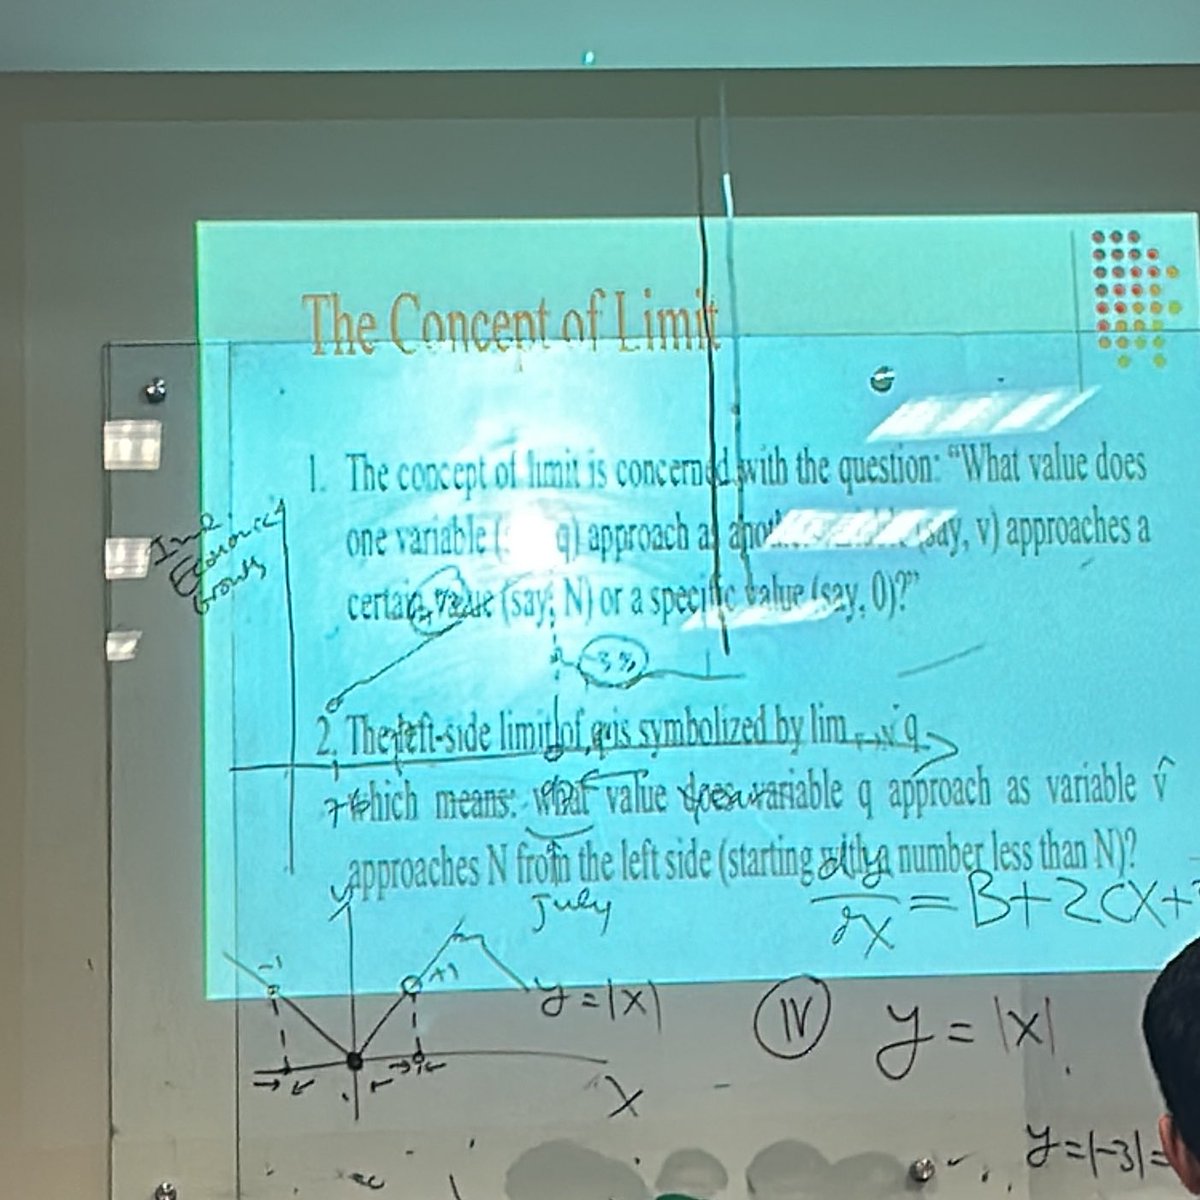 The Concept of Limit
1. The concept of limit is concerned with the question: “What value does
one variable ( q) approach as (say, v) approaches a
certain value (say, N) or a specific value (say, 0)?”
Economic
Growth
3%
2. The left-side limit of q is symbolized by lim q
which means: what value does variable q approach as variable v
approaches N from the left side (starting with a number less than N)?
July
dy/dx = B + 2CX +
-1
+1
y = |x|
X
IV y = |x|
y = |-3| =